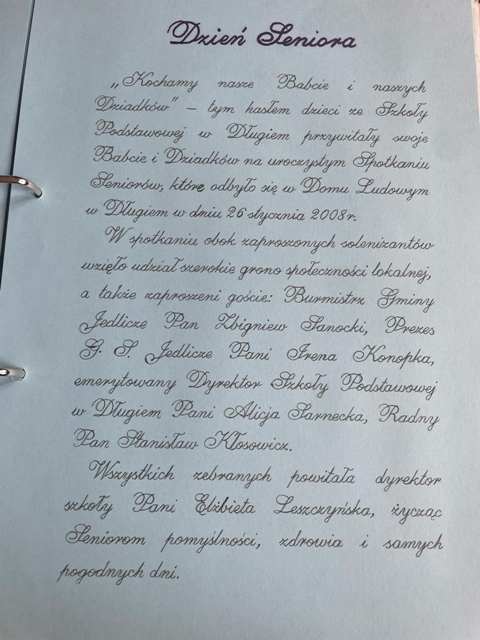 Dzień Seniora
„Kochamy nasze Babcie i naszych
Dziadków" – tym hasłem dzieci ze Szkoły
Podstawowej w Długiem przywitały swoje
Babcie i Dziadków na uroczystym Spotkaniu
Seniorów, które odbyło się w Domu Ludowym
w Długiem w dniu 26 stycznia 2008r.
W spotkaniu obok zaproszonych solenizantów
wzięło udział szerokie grono społeczności lokalnej,
a także zaproszeni goście: Burmistrz Gminy
Jedlicze Pan Zbigniew Sanocki, Prezes
G. S. Jedlicze Pani Irena Konopka,
emerytowany Dyrektor Szkoły Podstawowej
w Długiem Pani Alicja Sarnecka, Radny
Pan Stanisław Kłosowicz.
Wszystkich zebranych powitała dyrektor
szkoły Pani Elżbieta Leszczyńska, życząc
Seniorom pomyślności, zdrowia i samych
pogodnych dni.